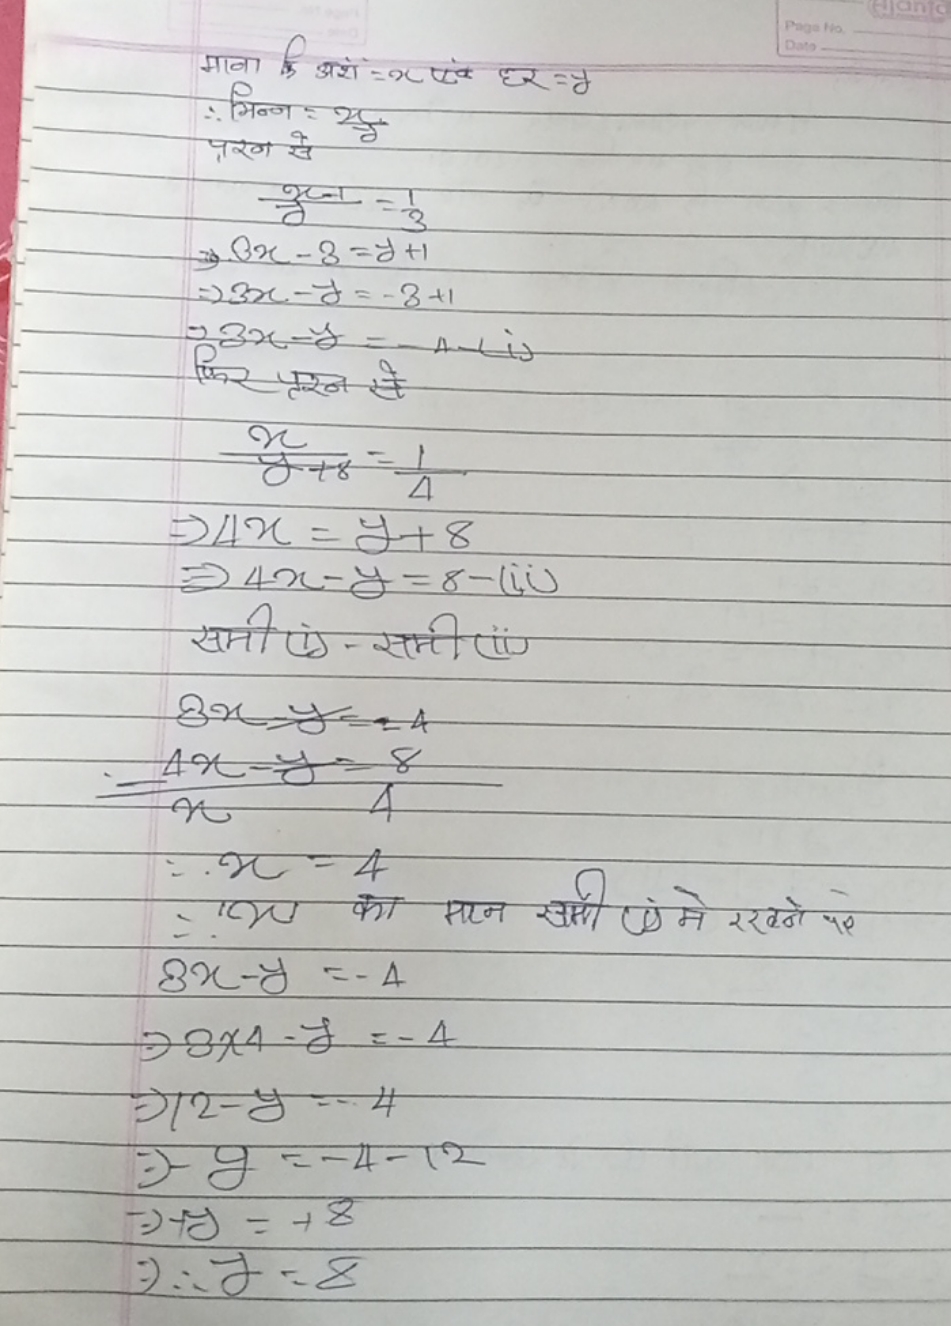 Page No.
Date
माना कि अशं = x एवं हर = y
∴ भिन्न = x/y
प्रश्न से
x-1/y = 1/3
⇒ 3x - 3 = y + 1
⇒ 3x - y = - 3 + 1
⇒ 3x - y = - 4 - (i)
फिर प्रश्न से
x/y + 8 = 1/4
⇒ 4x = y + 8
⇒ 4x - y = 8 - (ii)
समी (i) - समी (ii)
3x - y = - 4
- 4x - y = 8
x 4
∴ x = 4
∴ 'x' का मान समी (i) मे रखने पर
3x - y = - 4
⇒ 3x4 - y = - 4
⇒ 12 - y = - 4
⇒ - y = - 4 - 12
⇒ + y = + 8
⇒ ∴ y = 8